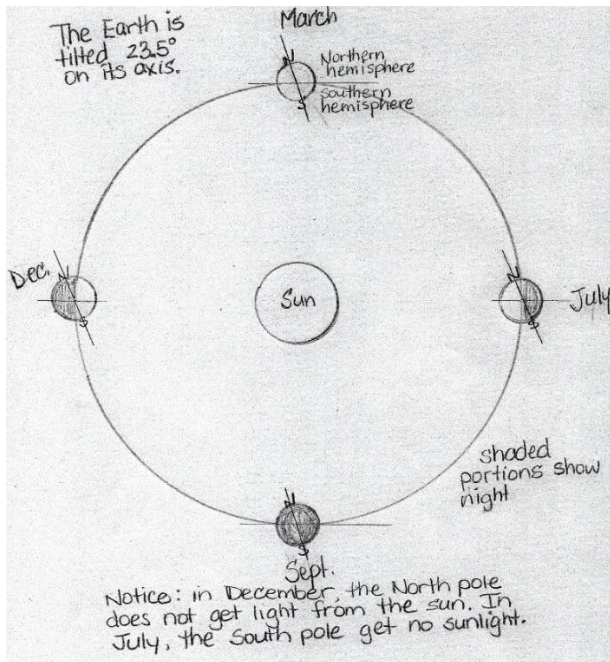 The Earth is
tilted 23.5°
on its axis.
March
N
Northern
hemisphere
Southern
hemisphere
S
Dec.
N
S
Sun
N
S
July
shaded
portions show
night
N
S
Sept.
Notice: in December, the North pole
does not get light from the sun. In
July, the South pole get no sunlight.